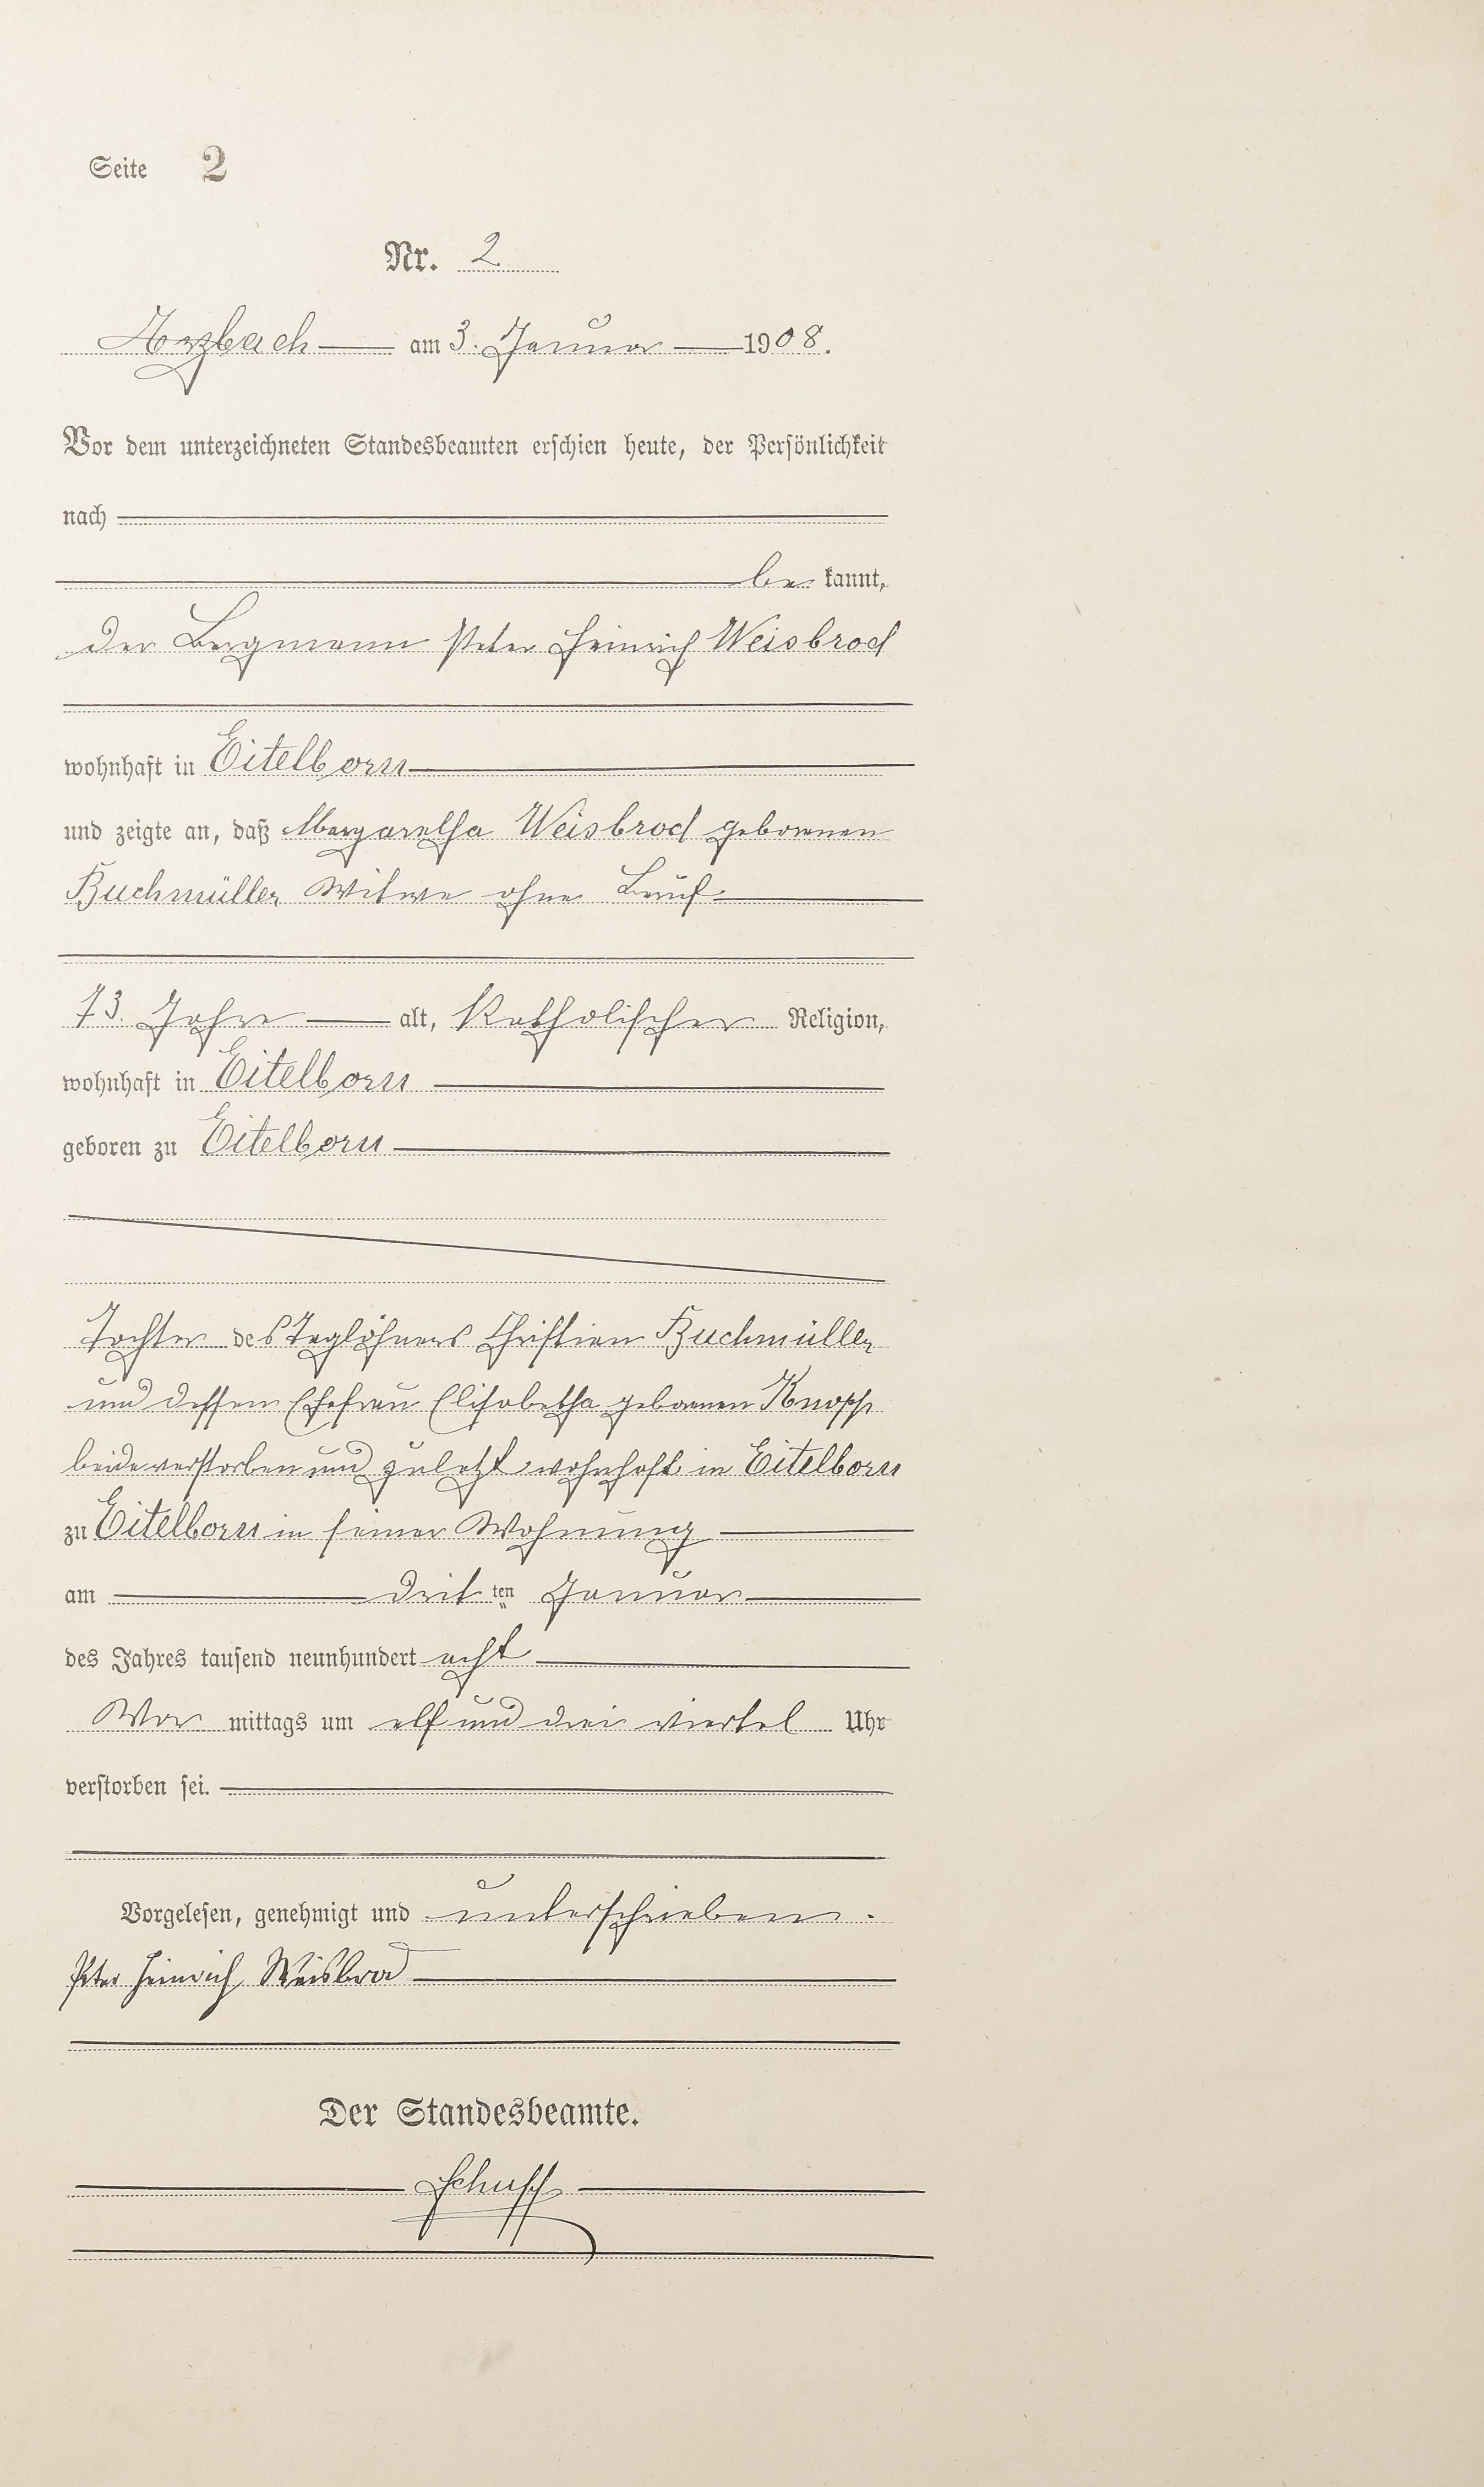 Seite 2
Nr. 2
Arzbach am 3. Januar 1908.
Vor dem unterzeichneten Standesbeamten erschien heute, der Persönlichkeit
nach
be kannt,
der Bergmann Peter Heinrich Weisbrod
wohnhaft in Eitelborn
und zeigte an, daß Margaretha Weisbrod geborenen
Buchmüller Witwe ohne Beruf
73 Jahre alt, Katholischer Religion,
wohnhaft in Eitelborn
geboren zu Eitelborn
Tochter des Taglöhners Christian Buchmüller
und dessen Ehefrau Elisabetha geborenen Knopp
beide verstorben und zuletzt wohnhaft in Eitelborn
zu Eitelborn in seiner Wohnung
am drit ten Januar
des Jahres tausend neunhundert acht
Vor mittags um elf und drei viertel Uhr
verstorben sei.
Vorgelesen, genehmigt und unterschrieben.
Peter Heinrich Weisbrod
Der Standesbeamte.